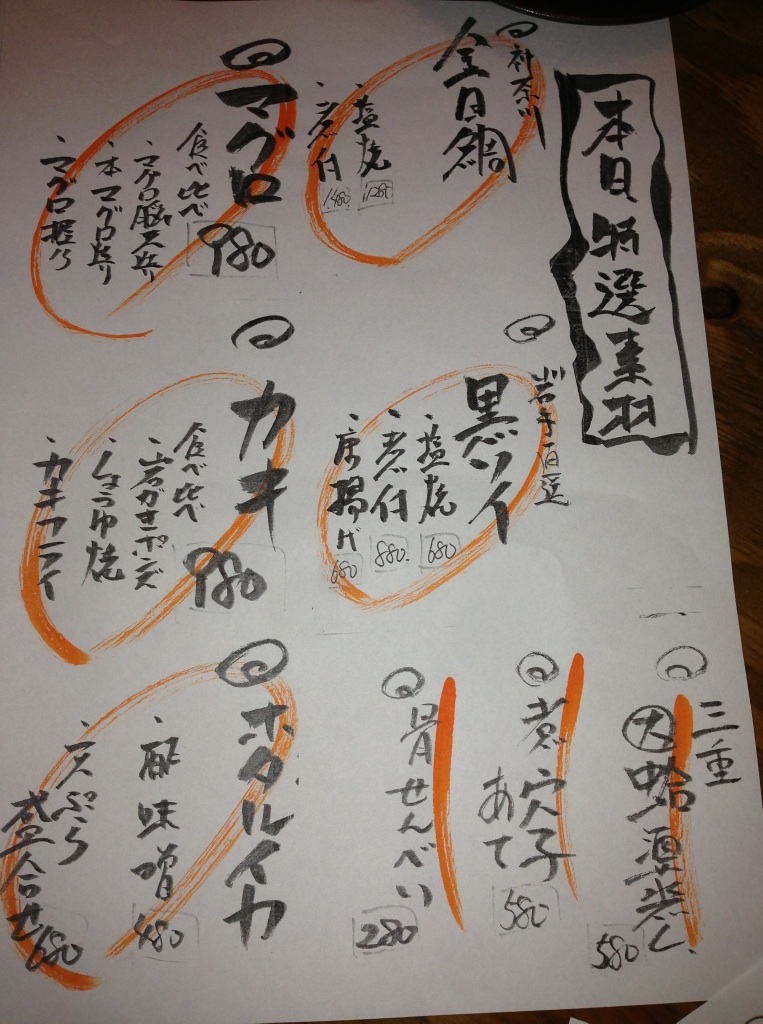 本日特選素材
神奈川
金目鯛
・塩焼 1,280
・煮付 1,480
マグロ
食べ比べ 980
・マグロ脳天炙り
・本マグロ炙り
・マグロ握り
岩手直送
黒ソイ
・塩焼 680
・煮付 880
・唐揚げ 680
カキ
食べ比べ 980
・岩ガキポンズ
・しょうゆ焼
・カキフライ
三重
大蛤酒蒸し 580
煮穴子
あて 580
骨せんべい 280
ホタルイカ
・酢味噌 480
・天ぷら
盛合せ 680